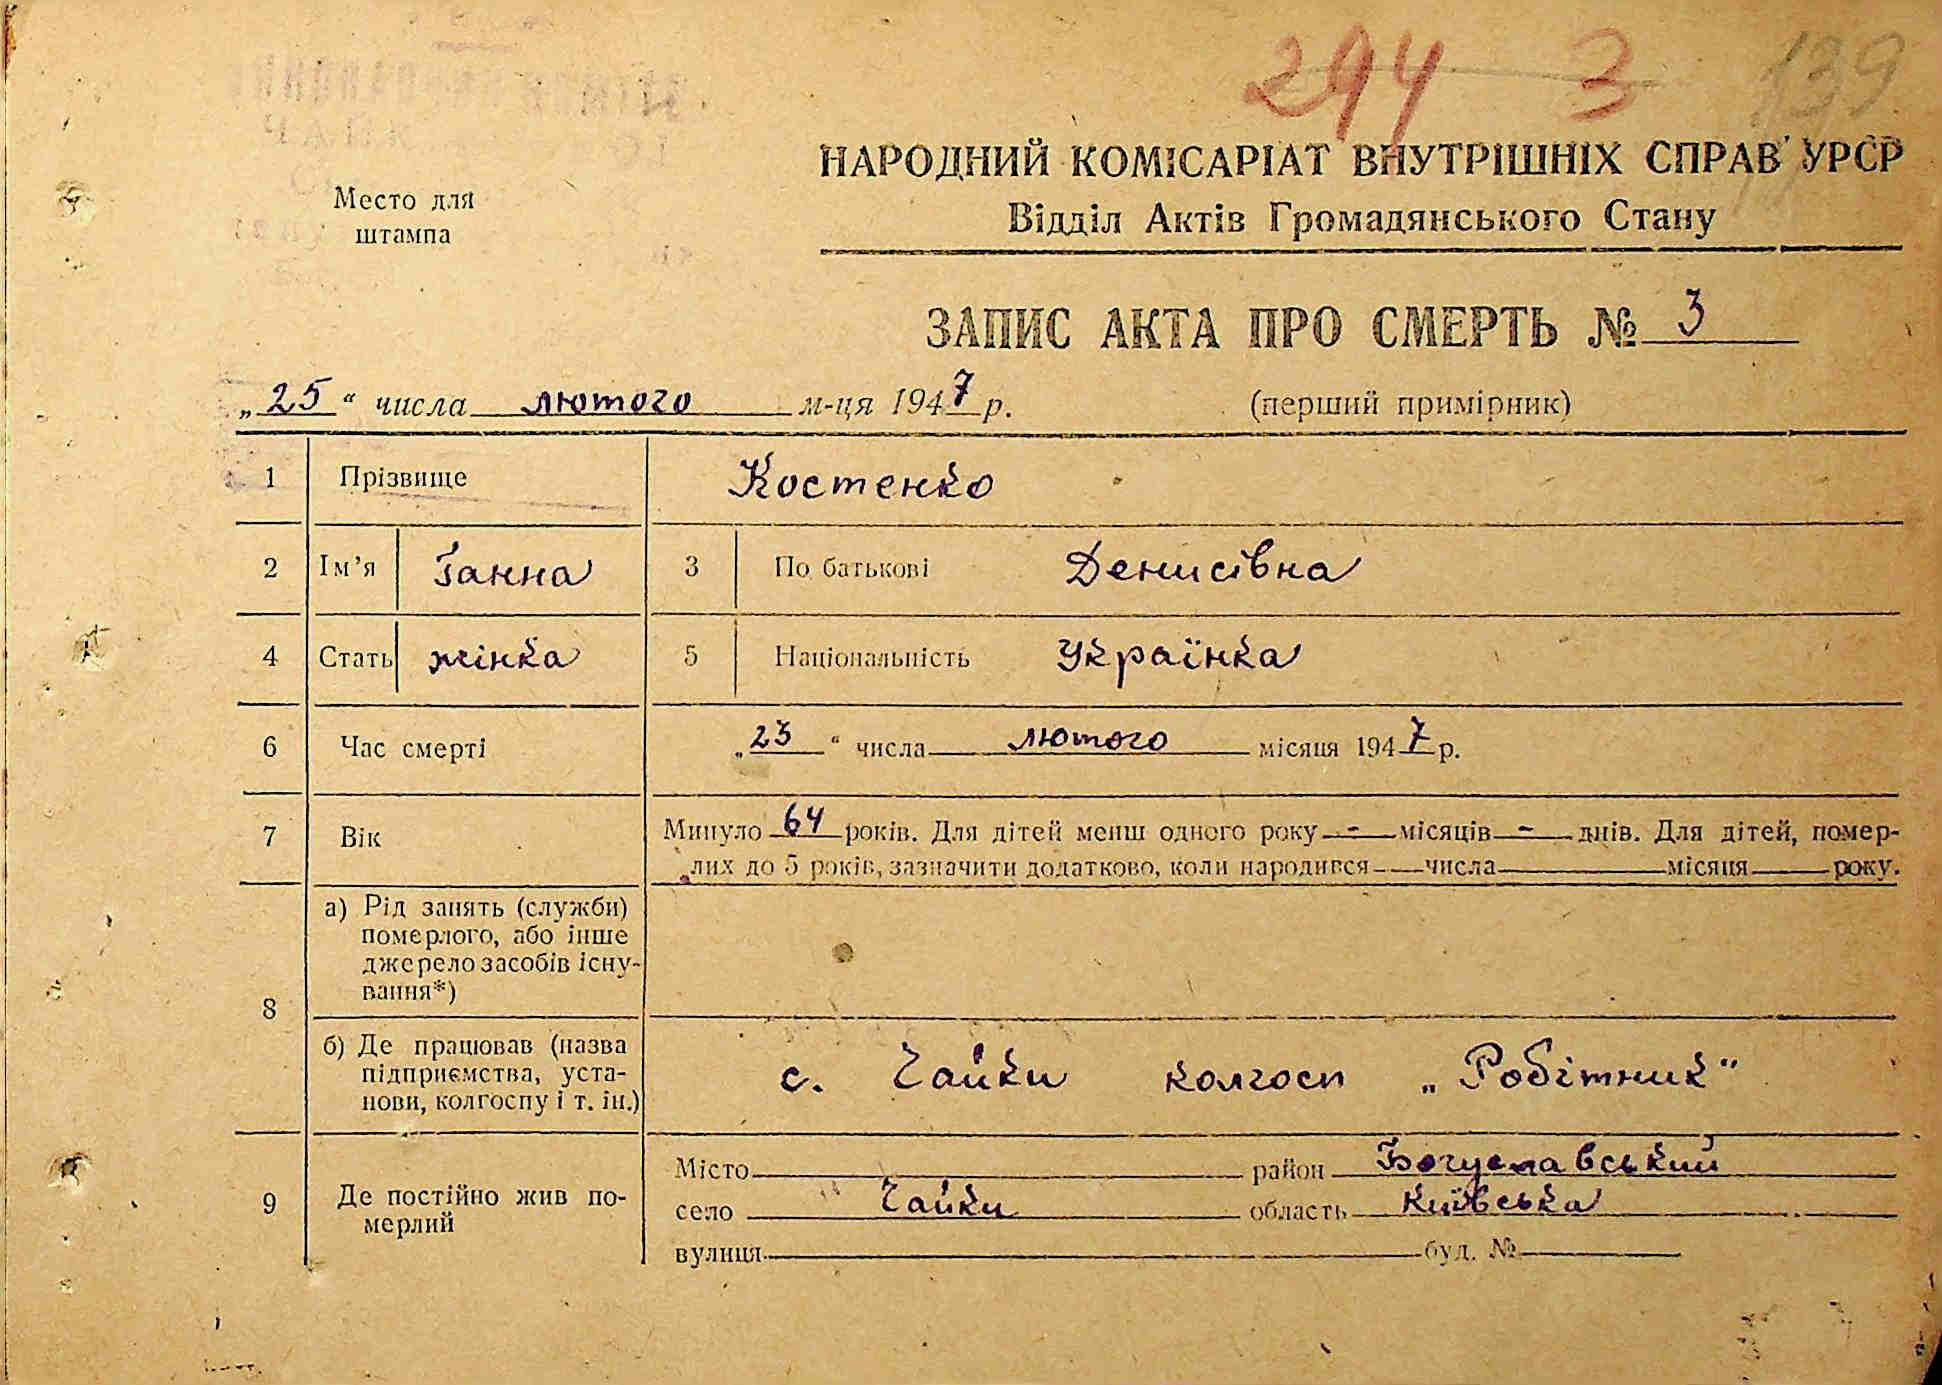 294 3 139
НАРОДНИЙ КОМІСАРІАТ ВНУТРІШНІХ СПРАВ УРСР
Відділ Актів Громадянського Стану
Место для
штампа
ЗАПИС АКТА ПРО СМЕРТЬ № 3
„25“ числа лютого м-ця 1947 р. (перший примірник)
1 Прізвище Костенко
2 Ім’я Ганна 3 По батькові Денисівна
4 Стать жінка 5 Національність Українка
6 Час смерті „23“ числа лютого місяця 1947 р.
7 Вік Минуло 64 років. Для дітей менш одного року - місяців - днів. Для дітей, помер-
лих до 5 років, зазначити додатково, коли народився числа місяця року.
8 а) Рід занять (служби)
померлого, або інше
джерело засобів існу-
вання*)
б) Де працював (назва
підприємства, уста-
нови, колгоспу і т. ін.)
с. Чайки колгосп „Робітник“
9 Де постійно жив по-
мерлий
Місто район Богуславський
село Чайки область Київська
вулиця буд. №